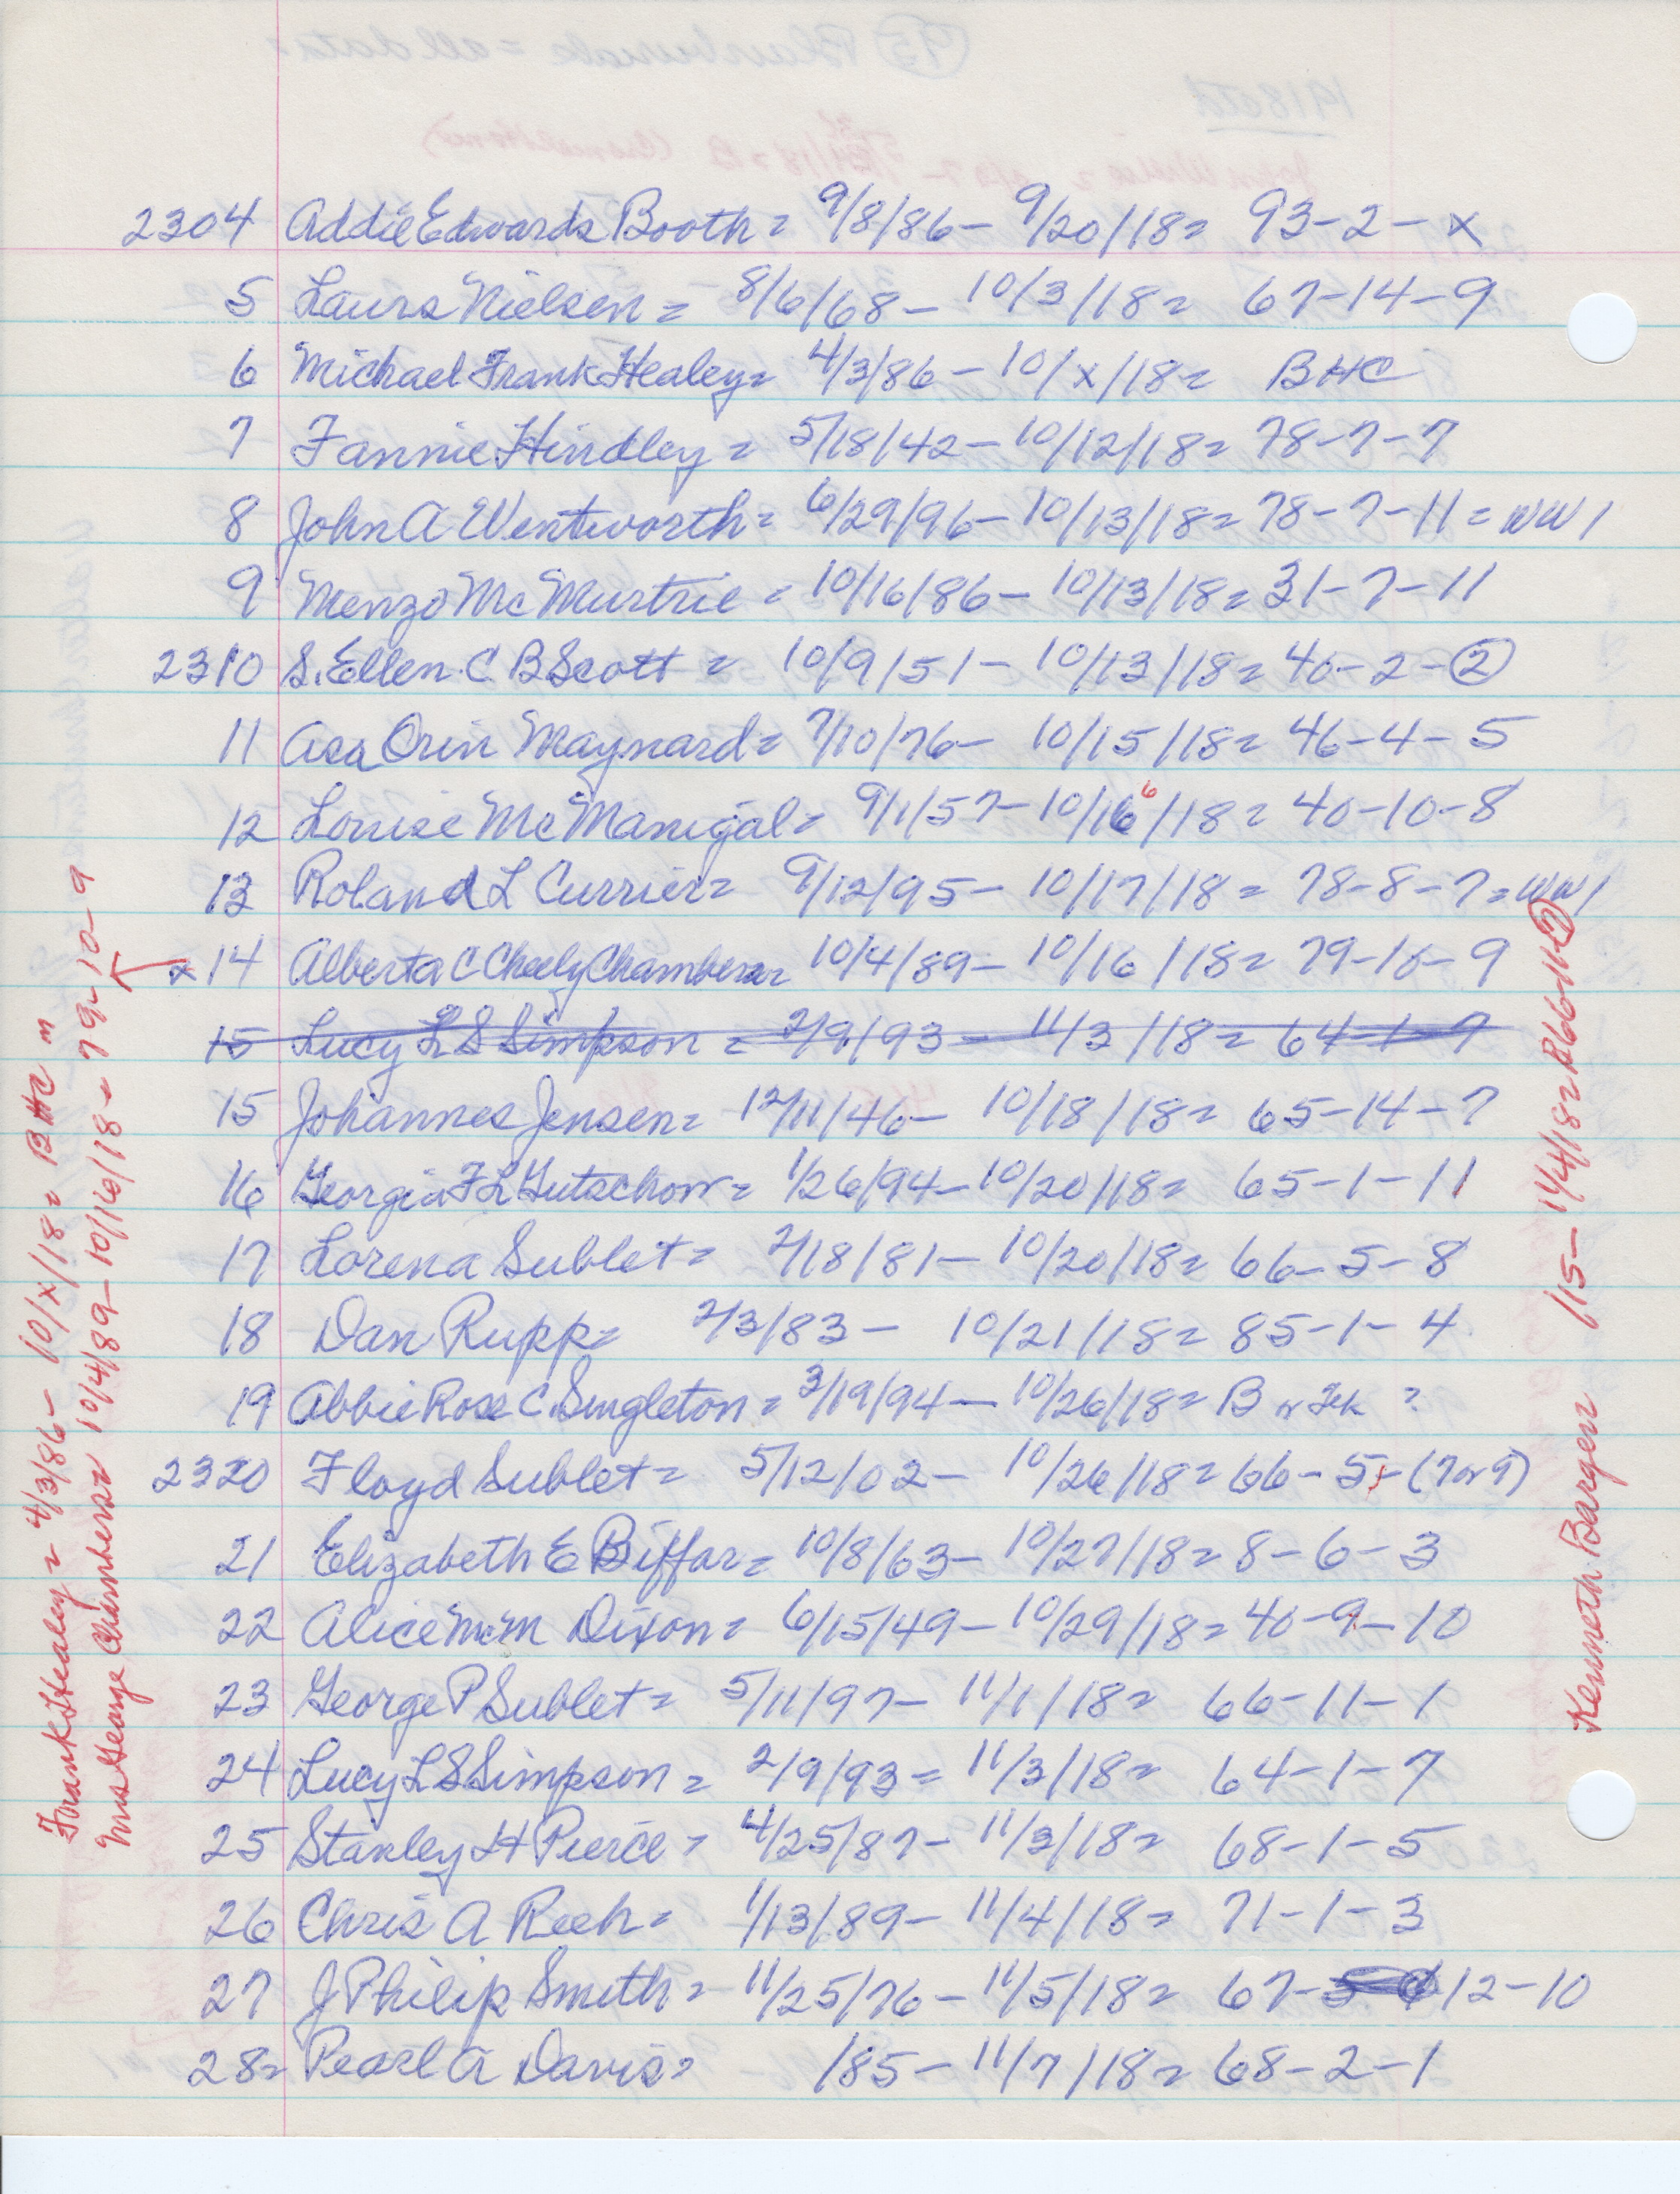 2304 Addie Edwards Booth = 9/8/86 - 9/20/18 = 93-2-x
5 Laura Nielsen = 8/6/68 - 10/3/18 = 67-14-9
6 Michael Frank Healey = 4/3/86 - 10/x/18 = BHC
7 Fannie Hindley = 5/18/42 - 10/12/18 = 78-7-7
8 John A Wentworth = 6/29/96 - 10/13/18 = 78-7-11 = WW1
9 Menzo McMurtrie = 10/16/86 - 10/13/18 = 31-7-11
2310 S. Ellen C B Scott = 10/9/51 - 10/13/18 = 40-2-2
11 Asa Orin Maynard = 7/10/76 - 10/15/18 = 46-4-5
12 Louise McManigal = 9/1/57 - 10/16/18 = 40-10-8
13 Roland L Currier = 9/12/95 - 10/17/18 = 78-8-7 = WW1
x 14 Alberta C Cheely Chambers = 10/4/89 - 10/16/18 = 79-10-9
15 Lucy L S Simpson = 2/9/93 - 11/3/18 = 64-1-7
15 Johannes Jensen = 12/11/46 - 10/18/18 = 65-14-7
16 Georgia F L Gutschow = 1/26/94 - 10/20/18 = 65-1-11
17 Lorena Sublet = 2/18/81 - 10/20/18 = 66-5-8
18 Dan Rupp = 2/3/83 - 10/21/18 = 85-1-4
19 Abbie Rose C. Singleton = 3/19/94 - 10/26/18 = B or Tek ?
2320 Floyd Sublet = 5/12/02 - 10/26/18 = 66-5-(7 or 9)
21 Elizabeth E Biffar = 10/8/63 - 10/27/18 = 8-6-3
22 Alice McM Dixon = 6/15/49 - 10/29/18 = 40-9-10
23 George P Sublet = 5/11/97 - 11/1/18 = 66-11-1
24 Lucy L S Simpson = 2/9/93 = 11/3/18 = 64-1-7
25 Stanley H Pierce = 4/25/87 - 11/3/18 = 68-1-5
26 Chris A Reeh = 1/13/89 - 11/4/18 = 71-1-3
27 J Philip Smith = 11/25/76 - 11/5/18 = 67-12-10
28 = Pearl A Davis = /85 - 11/7/18 = 68-2-1
Frank Healey = 4/3/86 - 10/x/18 = BHC m
Mrs George Chambers = 10/4/89 - 10/16/18 - 79-10-9
Kenneth Bargen 115-